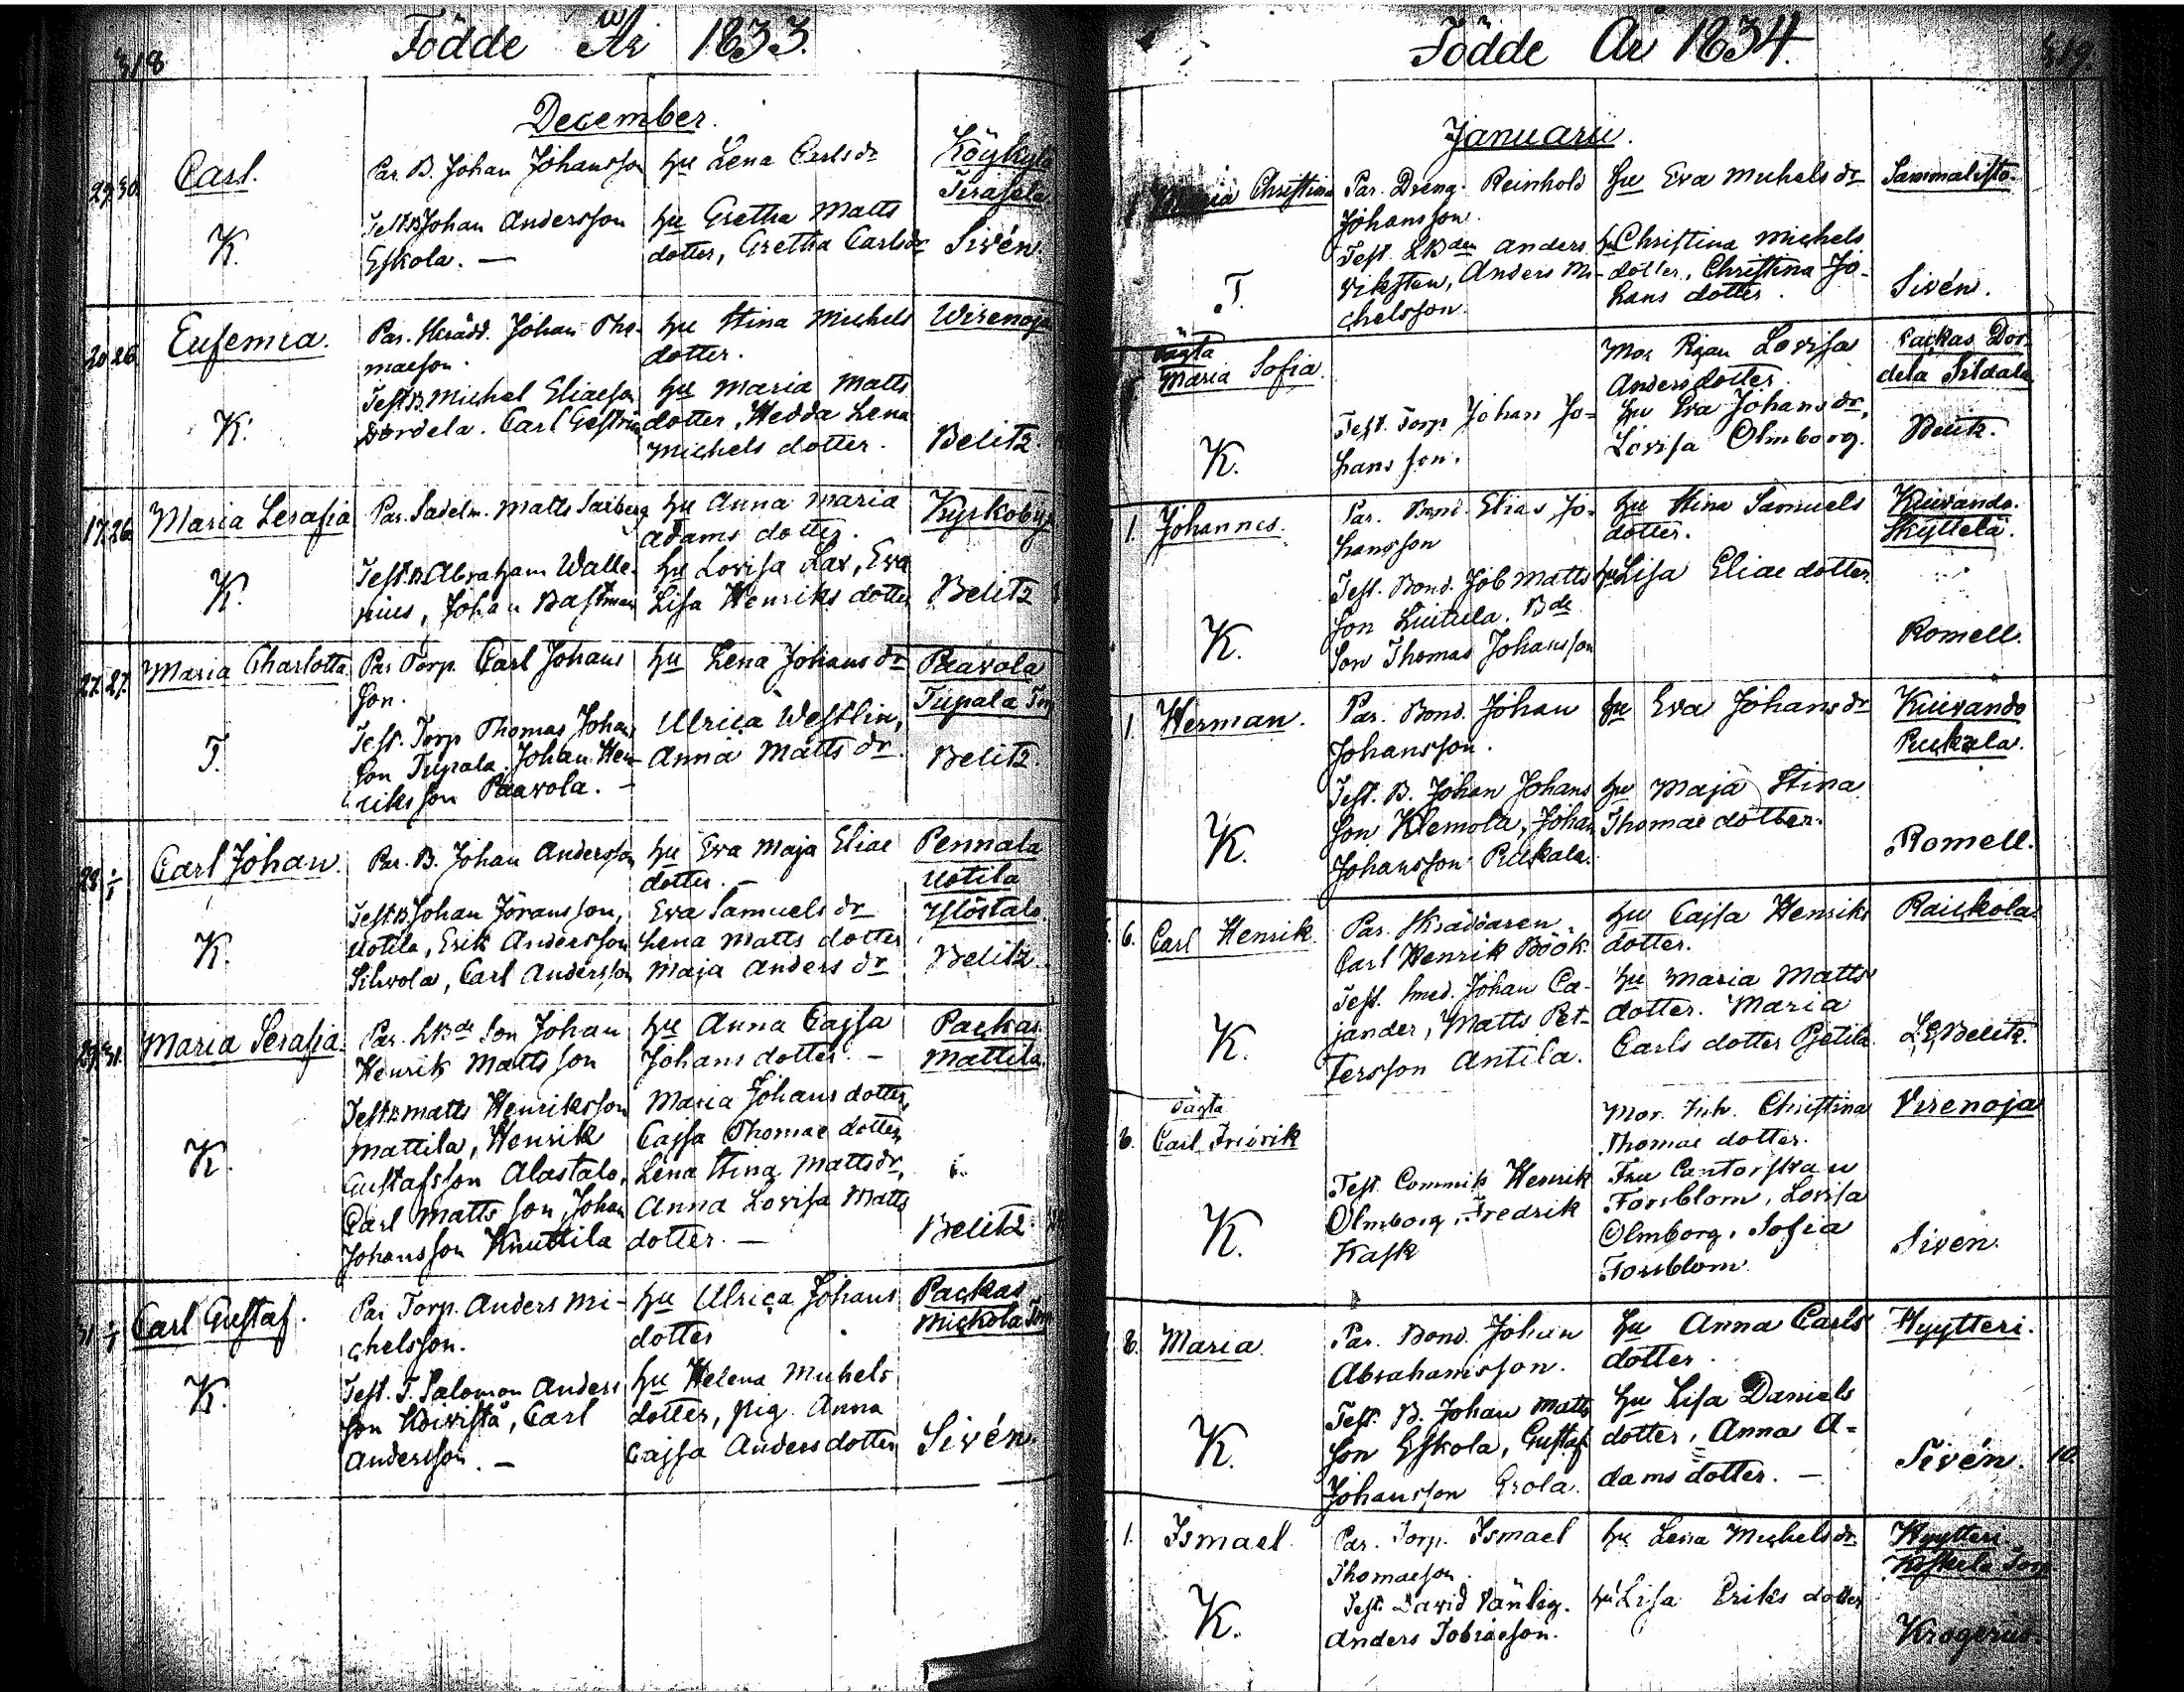 318
Födde År 1833.
December.
29. 30. Carl. Par. B. Johan Johansson hu Lena Carlsdr Köykylä
K. Test. B Johan Andersson hu Gretha Matts
Eskola. — dotter, Gretha Carlsdr Sivén.
20 26 Eufemia. Par. Johan Tho- hu Stina Michels Wirenoja
maeson. dotter.
Test. B. Michel Eliaeson hu Maria Matts
K. Dordela. Carl dotter, Hedda Lena
Michels dotter. Belitz.
17. 26. Maria Serafia Par. Sadelm. Matts hu Anna Maria Kyrkoby
Adams dotter.
Test. B. Abraham Walle- hu Lovisa Lax, Eva
K. nius, Johan Bastman Lisa Henriks dotter Belitz
27. 27. Maria Charlotta Par Torp. Carl Johans hu Lena Johansdr Paavola
son. Tupala
Test. Torp Thomas Johans Ulrica Westlin,
T. son Tupala. Johan Hen- Anna Mattsdr. Belitz.
riksson Paavola. —
28. Carl Johan. Par. B. Johan Andersson hu Eva Maja Eliae Pennala
dotter. — Uotila
Test. B Johan Jöransson, Eva Samuelsdr Ylöstalo
K. Uotila, Erik Andersson Lena Matts dotter
Sihvola, Carl Andersson Maja Andersdr Belitz.
29. 31. Maria Serafia. Par. LBde son Johan hu Anna Cajsa Packas
Henrik Mattsson Johans dotter. — Mattila
Test. B Matts Henriksson Maria Johans dotter,
K. Mattila, Henrik Cajsa Thomae dotter,
Gustafsson Alastalo, Lena Stina Mattsdr,
Carl Mattsson Johan Anna Lovisa Matts
Johansson Knuttila dotter. — Belitz
31 Carl Gustaf. Par Torp. Anders Mi- hu Ulrica Johans Packas
chelsson. dotter Mickola
K. Test. T. Salomon Anders hu Helena Michels
son Koivisto, Carl dotter, pig. Anna
Andersson. — Cajsa Andersdotter Sivén.
319.
Födde År 1834.
Januarii.
Maria Christina Par. Dreng. Reinhold hu Eva Michelsdr Sammalisto.
Johansson.
Test. LBden Anders hu Christina Michels
T. Viksten, Anders Mi- dotter, Christina Jo- Sivén.
chelsson. hans dotter.
oägta
Maria Sofia. Mor Pigan Lovisa Packas Dor-
Andersdotter dela
Test. Torp Johan Jo- hu Eva Johansdr,
K. hansson. Lovisa Olmborg. Belitz.
1. Johannes. Par. Bond. Elias Jo- hu Stina Samuels Kuivando.
hansson dotter. Skyttelä.
Test. Bond. Job Matts hu Lisa Eliae dotter
son Liutula. Bde
K. son Thomas Johansson Romell.
1. Herman. Par. Bond. Johan hu Eva Johansdr Kuivando
Johansson. Puckala.
Test. B. Johan Johans hu Maja Stina
K. son Klemola, Johan Thomae dotter.
Johansson Puckala. Romell.
6. Carl Henrik. Par. Skräddaren. hu Cajsa Henriks Raickola
Carl Henrik Böök. dotter.
Test. Smed. Johan Ca- hu Maria Matts
K. jander, Matts Pet- dotter. Maria
tersson Antila. Carls dotter Pjetila. Belitz.
oägta
6. Carl Fredrik Mor. Inh. Christina Virenoja
Thomae dotter.
Test. Commis Henrik Fru Cantorskan
K. Olmborg, Fredrik Forsblom, Lovisa
Kask Olmborg, Sofia Siven.
Forsblom.
6. Maria. Par. Bond. Johan hu Anna Carls Hyytteri.
Abrahamsson. dotter.
Test. B. Johan Matts hu Lisa Daniels
K. son Eskola, Gustaf dotter, Anna A-
Johansson Erola. dams dotter. — Sivén. 10.
1. Ismael. Par. Torp. Ismael hu Lena Michelsdr Hyytteri
Thomaeson. Koskela Torp
Test. David Vänlig. hu Lisa Eriks dotter
K. Anders Tobiaeson. Krogerus.